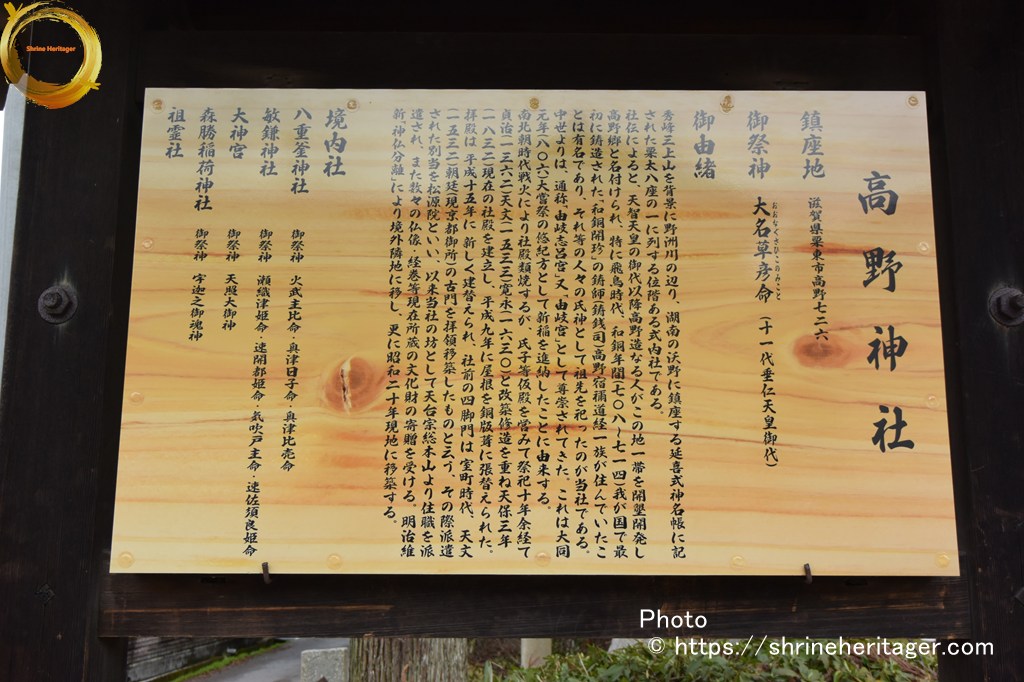 Shrine Heritager
高野神社
鎮座地 滋賀県栗東市高野七二六
御祭神 大名草彦命 (十一代垂仁天皇御代)
おおなくさひこのみこと
御由緒
秀峰三上山を背景に野洲川の辺り、湖南の沃野に鎮座する延喜式神名帳に記
された栗太八座の一に列する位階ある式内社である。
社伝によると、天智天皇の御代以降高野造なる人がこの地一帯を開墾開発し
高野郷と名付けられ、特に飛鳥時代、和銅年間(七〇八ー七一四)我が国で最
初に鋳造された「和銅開珍」の鋳師(鋳銭司)高野宿禰道経一族が住んでいたこ
とは有名であり、それ等の人々の氏神として祖先を祀ったのが当社である。
中世よりは、通称「由岐志呂宮」又「由岐宮」として尊崇されてきた。これは大同
元年(八〇六)大嘗祭の悠紀方として新稲を進納したことに由来する。
南北朝時代戦火により社殿類焼するが、氏子等仮殿を営みて祭祀十年余経て
貞治(一三六二)天文(一五三三)寛永(一六三〇)と改築修造を重ね天保三年
(一八三二)現在の社殿を建立し、平成九年に屋根を銅版葺に張替えられた。
拝殿は 平成十五年に 新しく建替えられ、社前の四脚門は 室町時代、天文
(一五三二)朝廷(現京都御所)の古門を拝領移築したものと云う、その際派遣
された別当を松源院といい、以来当社の坊として天台宗総本山より住職を派
遣され、また数々の仏像、経巻等現在所蔵の文化財の寄贈を受ける。明治維
新「神仏分離」により境外隣地に移し、更に昭和二十年現地に移築する。
境内社
八重釜神社 御祭神 火武主比命・奥津日子命・奥津比売命
敏鎌神社 御祭神 瀬織津姫命・速開都姫命・気吹戸主命・速佐須良姫命
大神宮 御祭神 天照大御神
森勝稲荷神社 御祭神 宇迦之御魂神
祖霊社
Photo
© https://shrineheritager.com